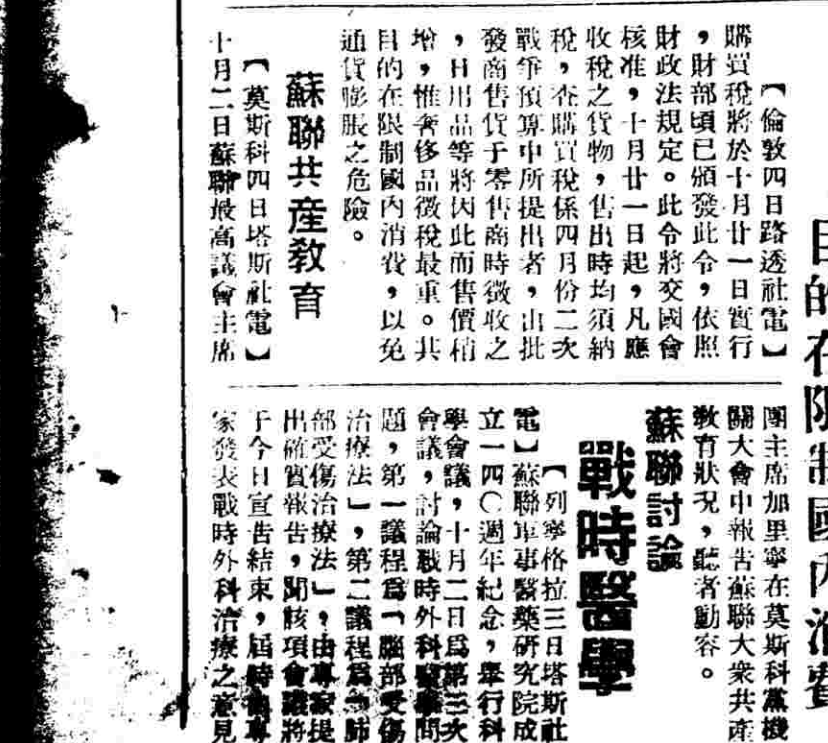 目的在限制國內消費
【倫敦四日路透社電】
購買稅將於十月廿一日實行
，財部頃已頒發此令，依照
財政法規定。此令將交國會
核准，十月廿一日起，凡應
收稅之貨物，售出時均須納
稅，查購買稅係四月份二次
戰爭預算中所提出者，由批
發商售貨于零售商時徵收之
，日用品等將因此而售價稍
增，惟奢侈品徵稅最重。其
目的在限制國內消費，以免
通貨膨脹之危險。
蘇聯共產敎育
【莫斯科四日塔斯社電】
十月二日蘇聯最高議會主席
團主席加里寧在莫斯科黨機
關大會中報告蘇聯大衆共產
敎育狀況，聽者動容。
蘇聯討論
戰時醫學
【列寧格拉三日塔斯社
電】蘇聯軍事醫藥研究院成
立一四〇週年紀念，舉行科
學會議，十月二日爲第三次
會議，討論戰時外科醫學問
題，第一議程爲「腦部受傷
治療法」，第二議程爲「肺
部受傷治療法」，由專家提
出確實報告，聞該項會議將
于今日宣告結束，屆時由專
家發表戰時外科治療之意見